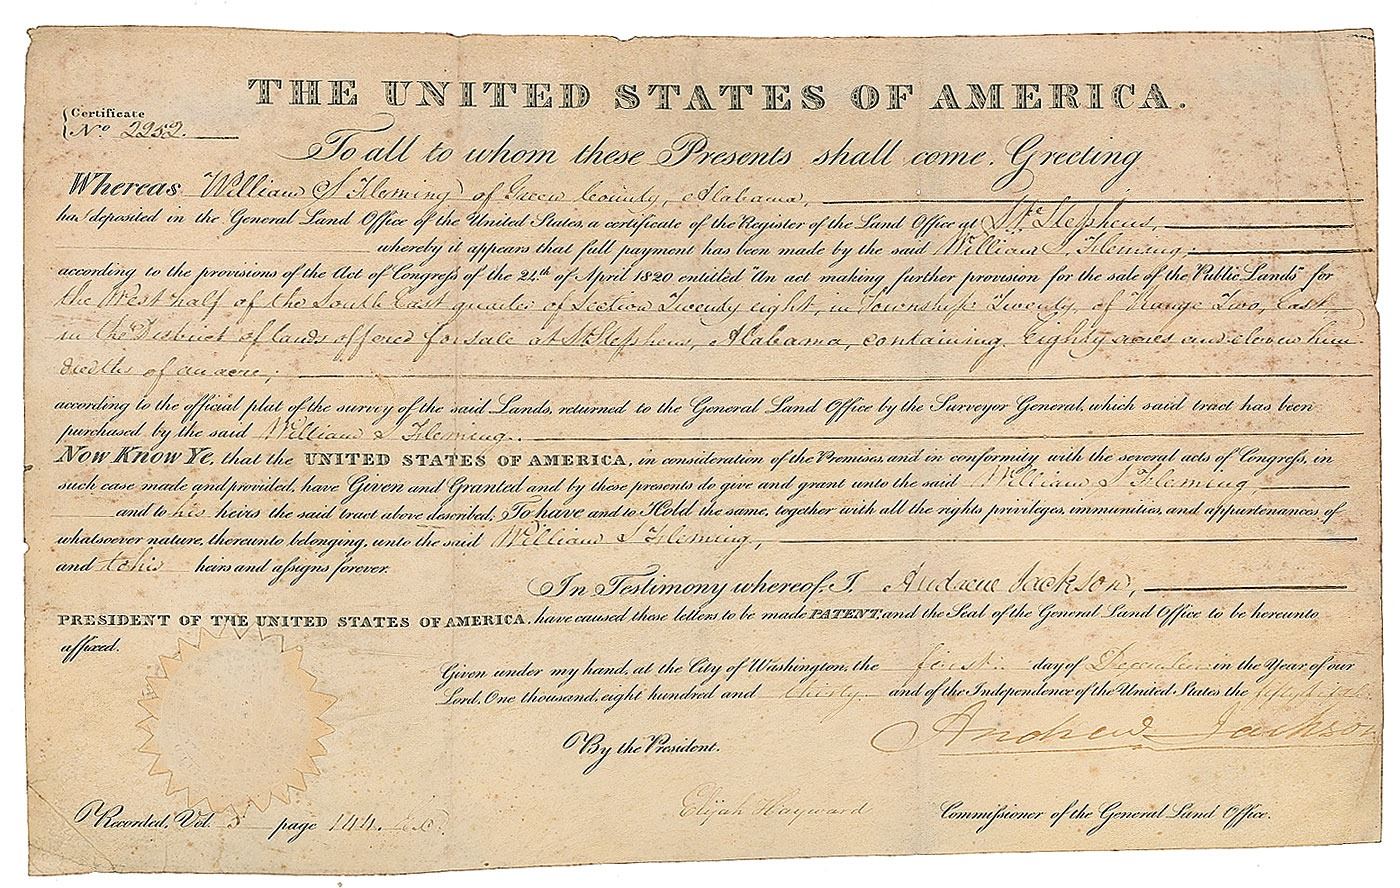 THE UNITED STATES OF AMERICA.
Certificate
No 2252.
To all to whom these Presents shall come, Greeting
Whereas William S Fleming of Green County, Alabama,
has deposited in the General Land Office of the United States, a certificate of the Register of the Land Office at St Stephens,
whereby it appears that full payment has been made by the said William S. Fleming,
according to the provisions of the Act of Congress of the 24th of April 1820 entitled "An act making further provision for the sale of the Public Lands" for
the West half of the South East quarter of Section Twenty eight, in Township Twenty, of Range Two, East
in the District of lands offered for sale at St Stephens, Alabama, containing, Eighty acres and eleven hun
dredths of an acre;
according to the official plat of the survey of the said Lands, returned to the General Land Office by the Surveyor General, which said tract has been
purchased by the said William S Fleming.
Now Know Ye, that the UNITED STATES OF AMERICA, in consideration of the Premises, and in conformity with the several acts of Congress, in
such case made and provided, have Given and Granted and by these presents do give and grant unto the said William S Fleming,
and to his heirs the said tract above described; To have and to Hold the same, together with all the rights privileges, immunities, and appurtenances of
whatsoever nature, thereunto belonging, unto the said William S Fleming,
and to his heirs and assigns forever.
In Testimony whereof, I, Andrew Jackson,
PRESIDENT OF THE UNITED STATES OF AMERICA, have caused these letters to be made PATENT, and the Seal of the General Land Office to be hereunto
affixed.
Given under my hand, at the City of Washington, the first day of December in the Year of our
Lord, One thousand, eight hundred and thirty and of the Independence of the United States the
Andrew Jackson
By the President.
Elijah Hayward Commissioner of the General Land Office.
Recorded, Vol. 5 page 144.